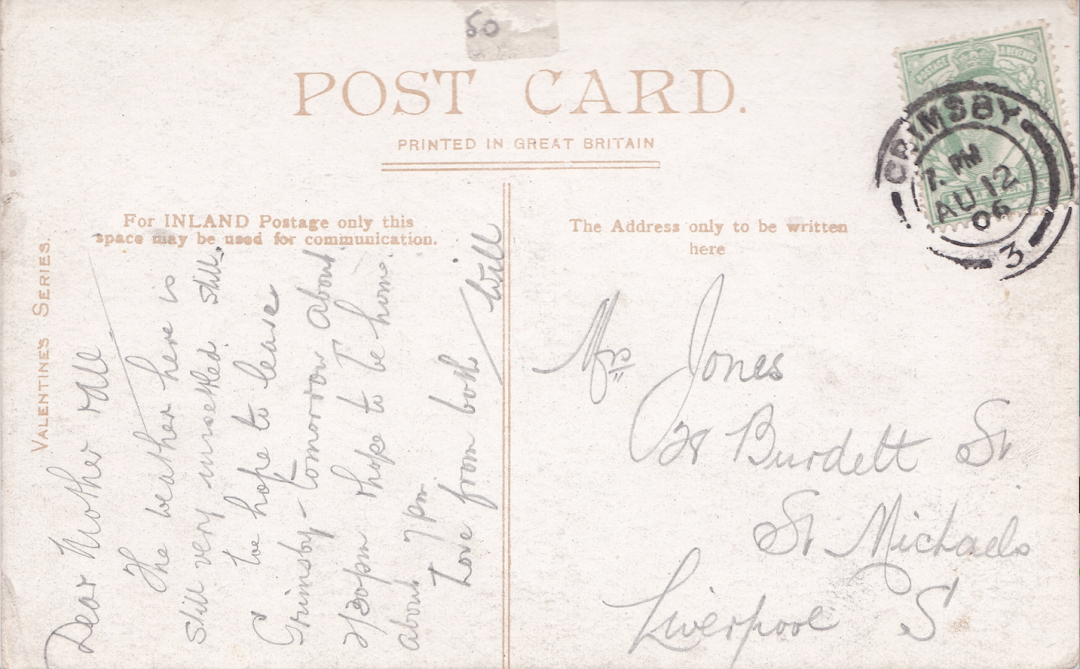 50
POST CARD.
PRINTED IN GREAT BRITAIN
VALENTINE'S SERIES.
For INLAND Postage only this
space may be used for communication.
The Address only to be written
here
POSTAGE & REVENUE
GRIMSBY
7. PM
AU 12
06
3
Dear Mother & All
The weather here is
still very unsettled still,
we hope to leave
Grimsby - tomorrow about
2/30pm & hope to be home
about 7pm
Love from both
Will
Mrs Jones
Burdett St
St Michaels
Liverpool S